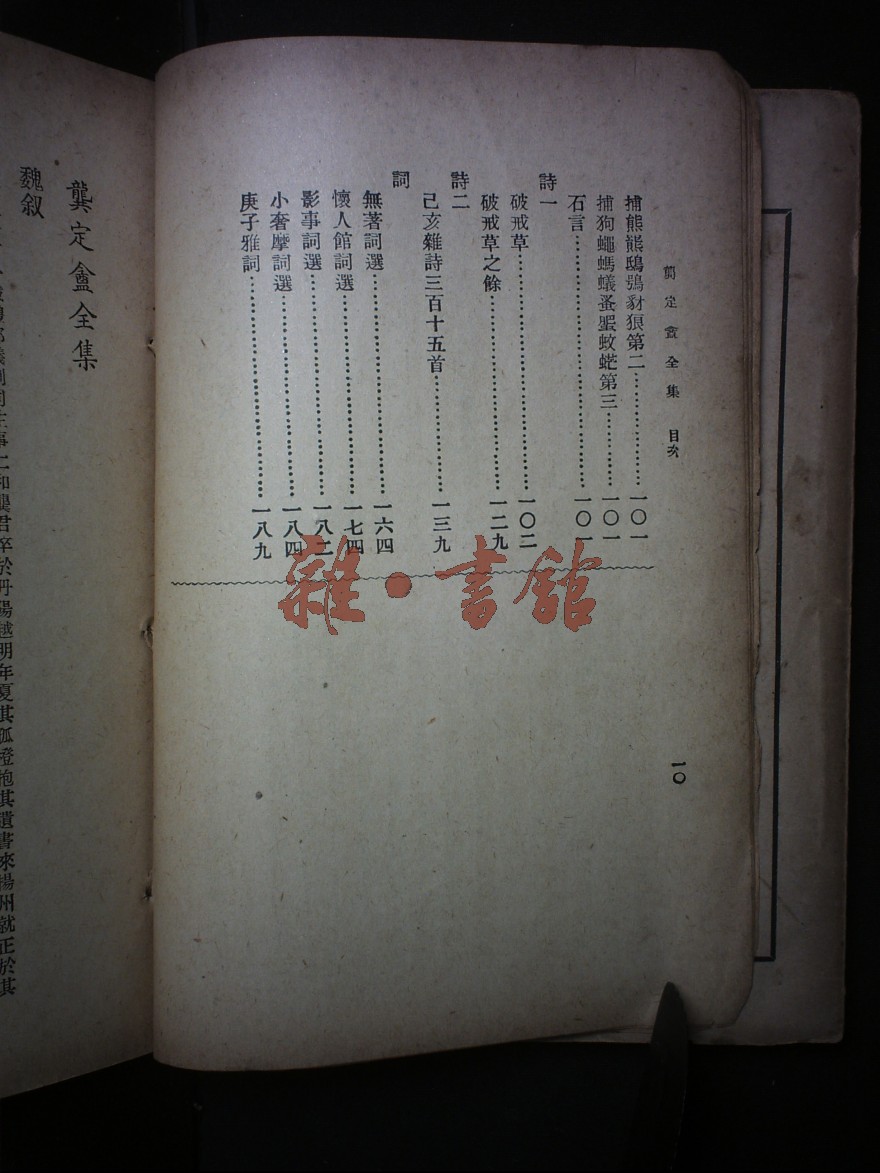 龔定盦全集 目次
捕熊羆鴟鴞豺狼第二……………一〇一
捕狗蠅螞蟻蚤蜰蚊虻第三…………一〇一
石言……………一〇一
詩一
破戒草……………一〇二
破戒草之餘……………一二九
詩二
己亥雜詩三百十五首……………一三九
詞
無著詞選……………一六四
懷人館詞選……………一七四
影事詞選……………一八二
小奢摩詞選……………一八四
庚子雅詞……………一八九
一〇
雜·書館
龔定盦全集
魏叙
事仁和龔君卒於丹陽越明年夏其孤橙抱其遺書來揚州就正於其